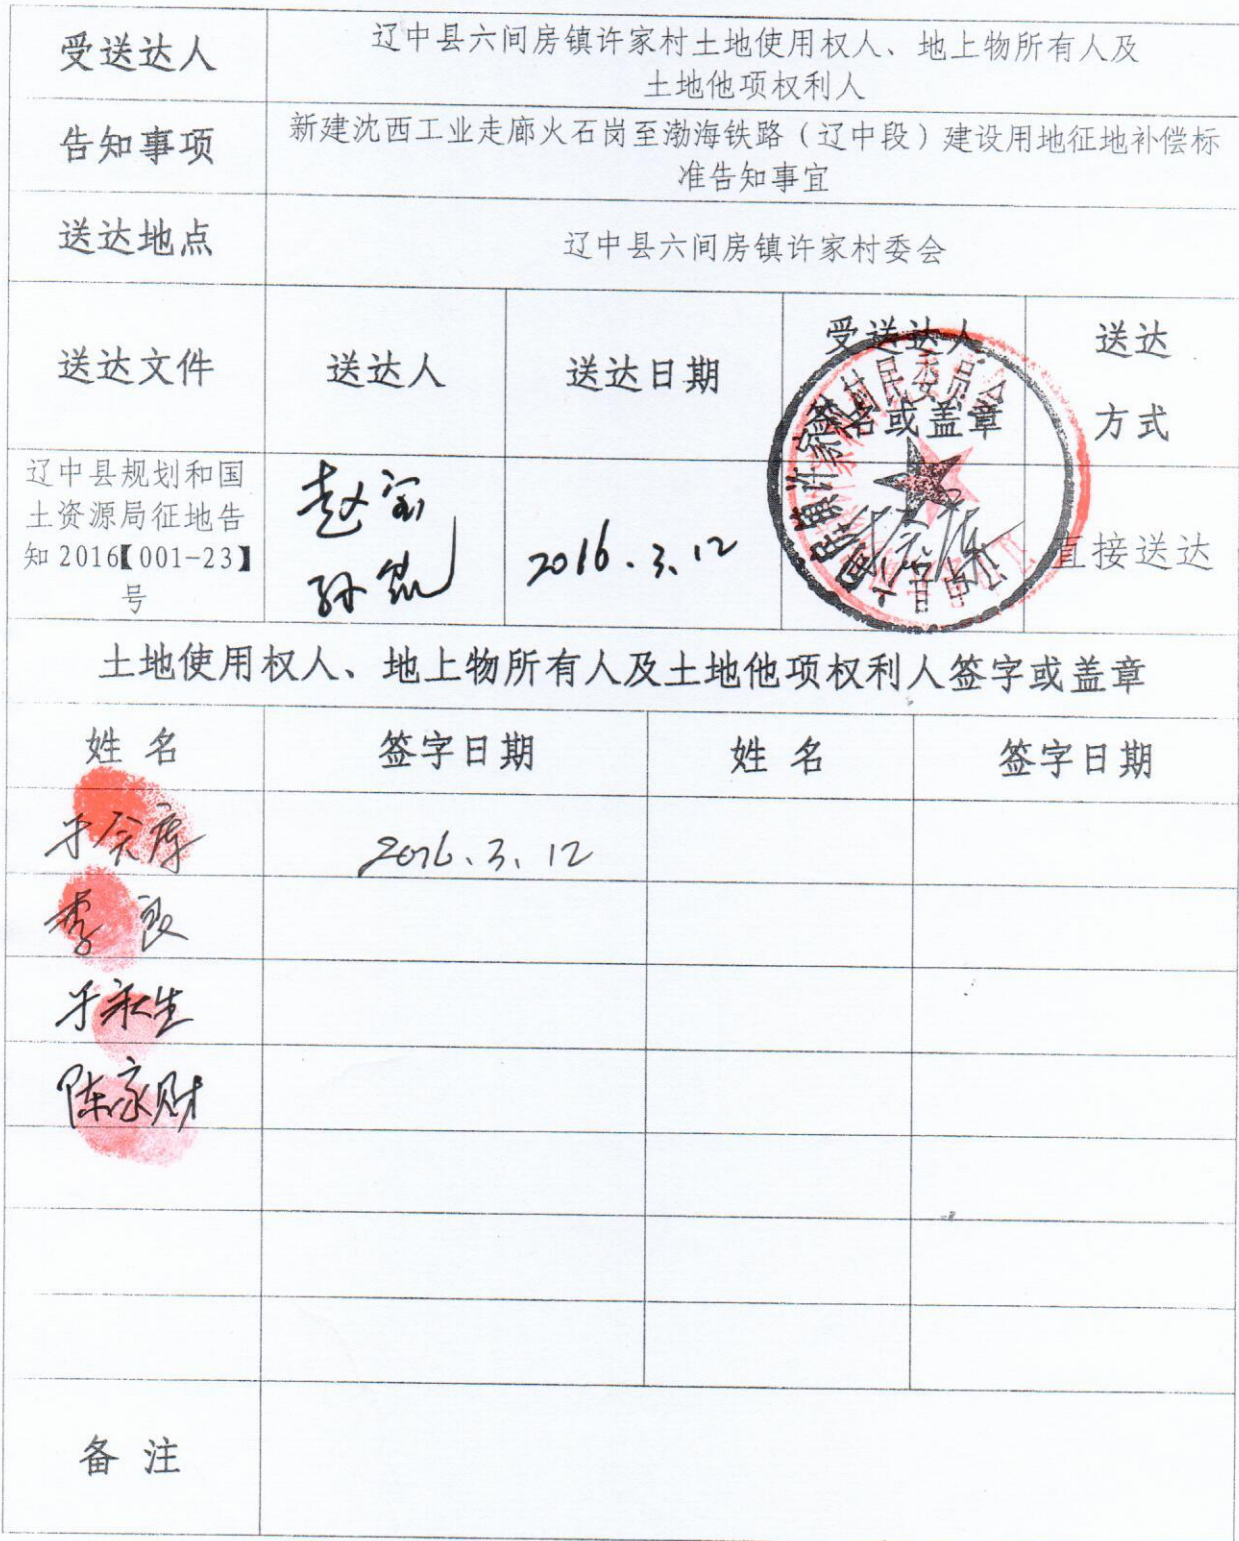 受送达人
辽中县六间房镇许家村土地使用权人、地上物所有人及
土地他项权利人
告知事项
新建沈西工业走廊火石岗至渤海铁路（辽中段）建设用地征地补偿标
准告知事宜
送达地点
辽中县六间房镇许家村委会
送达文件
送达人
送达日期
受送达人
签名或盖章
送达
方式
辽中县规划和国
土资源局征地告
知 2016【001-23】
号
2016.3.12
直接送达
土地使用权人、地上物所有人及土地他项权利人签字或盖章
姓 名
签字日期
姓 名
签字日期
2016.3.12
李良
于永生
陈家财
备 注